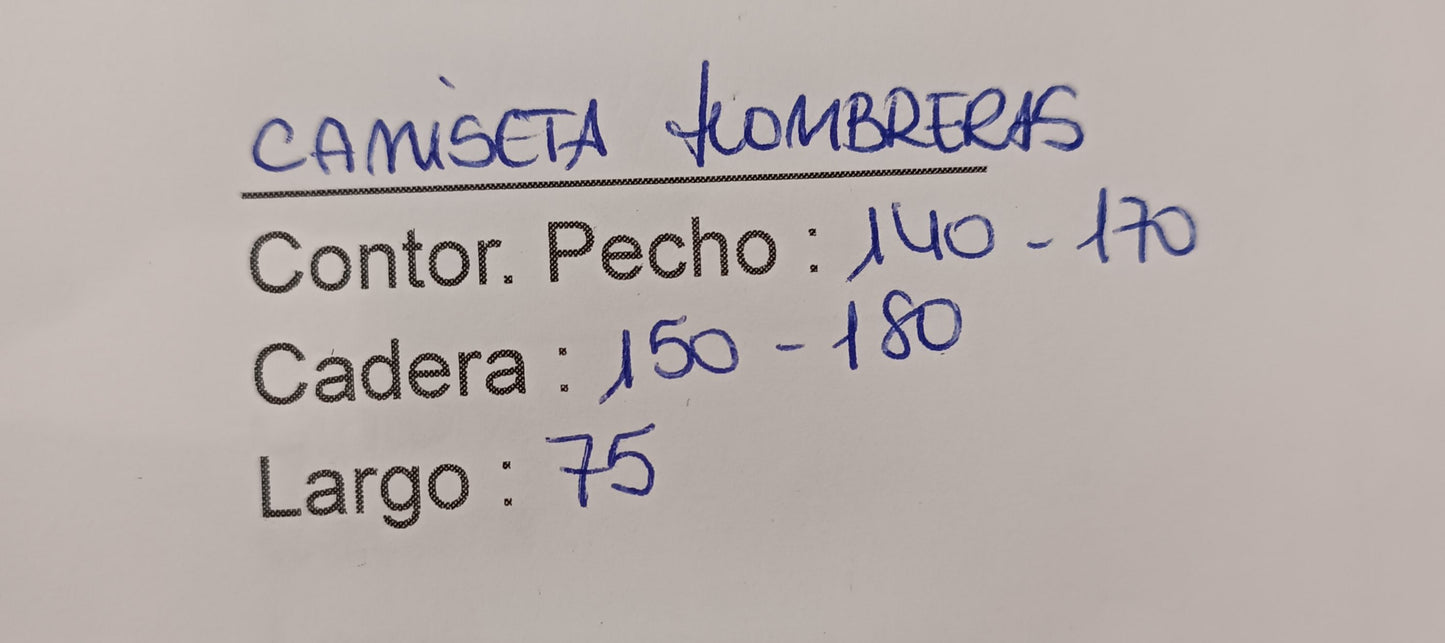 CAMISETA HOMBRERAS
Contor. Pecho : 140 - 170
Cadera : 150 - 180
Largo : 75